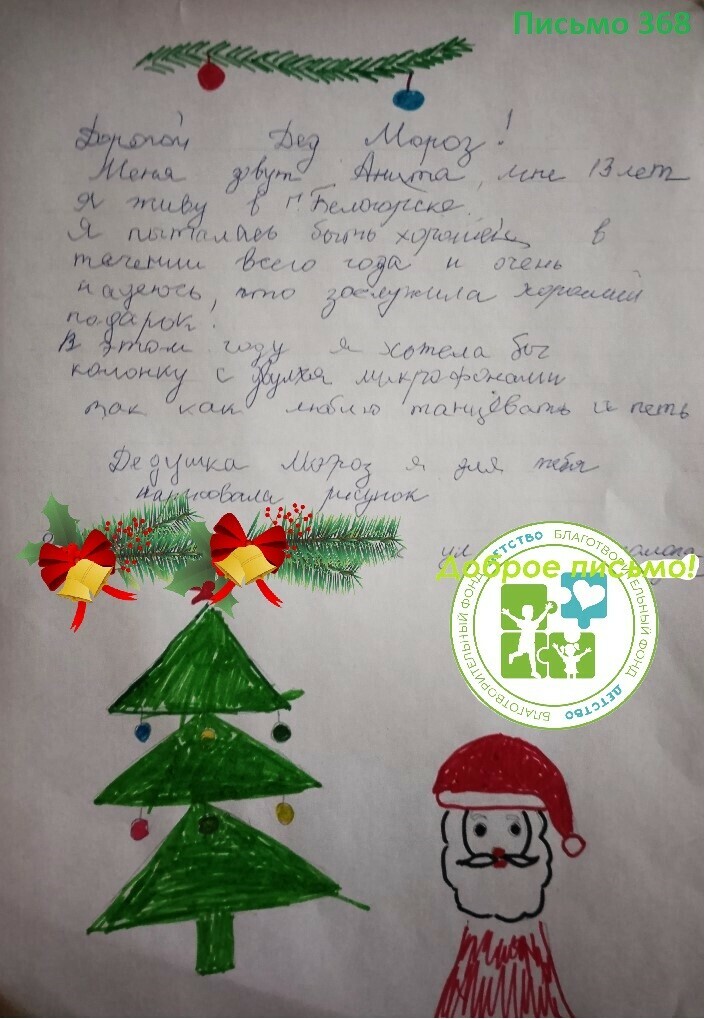 Письмо 368
Дорогой Дед Мороз!
Меня зовут Анита, мне 13 лет
Я живу в г. Белогорске.
Я пыталась быть хорошей в
течении всего года и очень
надеюсь, что заслужила хороший
подарок!
В этом году я хотела бы
колонку с двумя микрофонами
так как люблю танцевать и петь
Дедушка Мороз я для тебя
нарисовала рисунок
ул
Доброе письмо!
БЛАГОТВОРИТЕЛЬНЫЙ ФОНД ДЕТСТВО БЛАГОТВОРИТЕЛЬНЫЙ ФОНД ДЕТСТВО